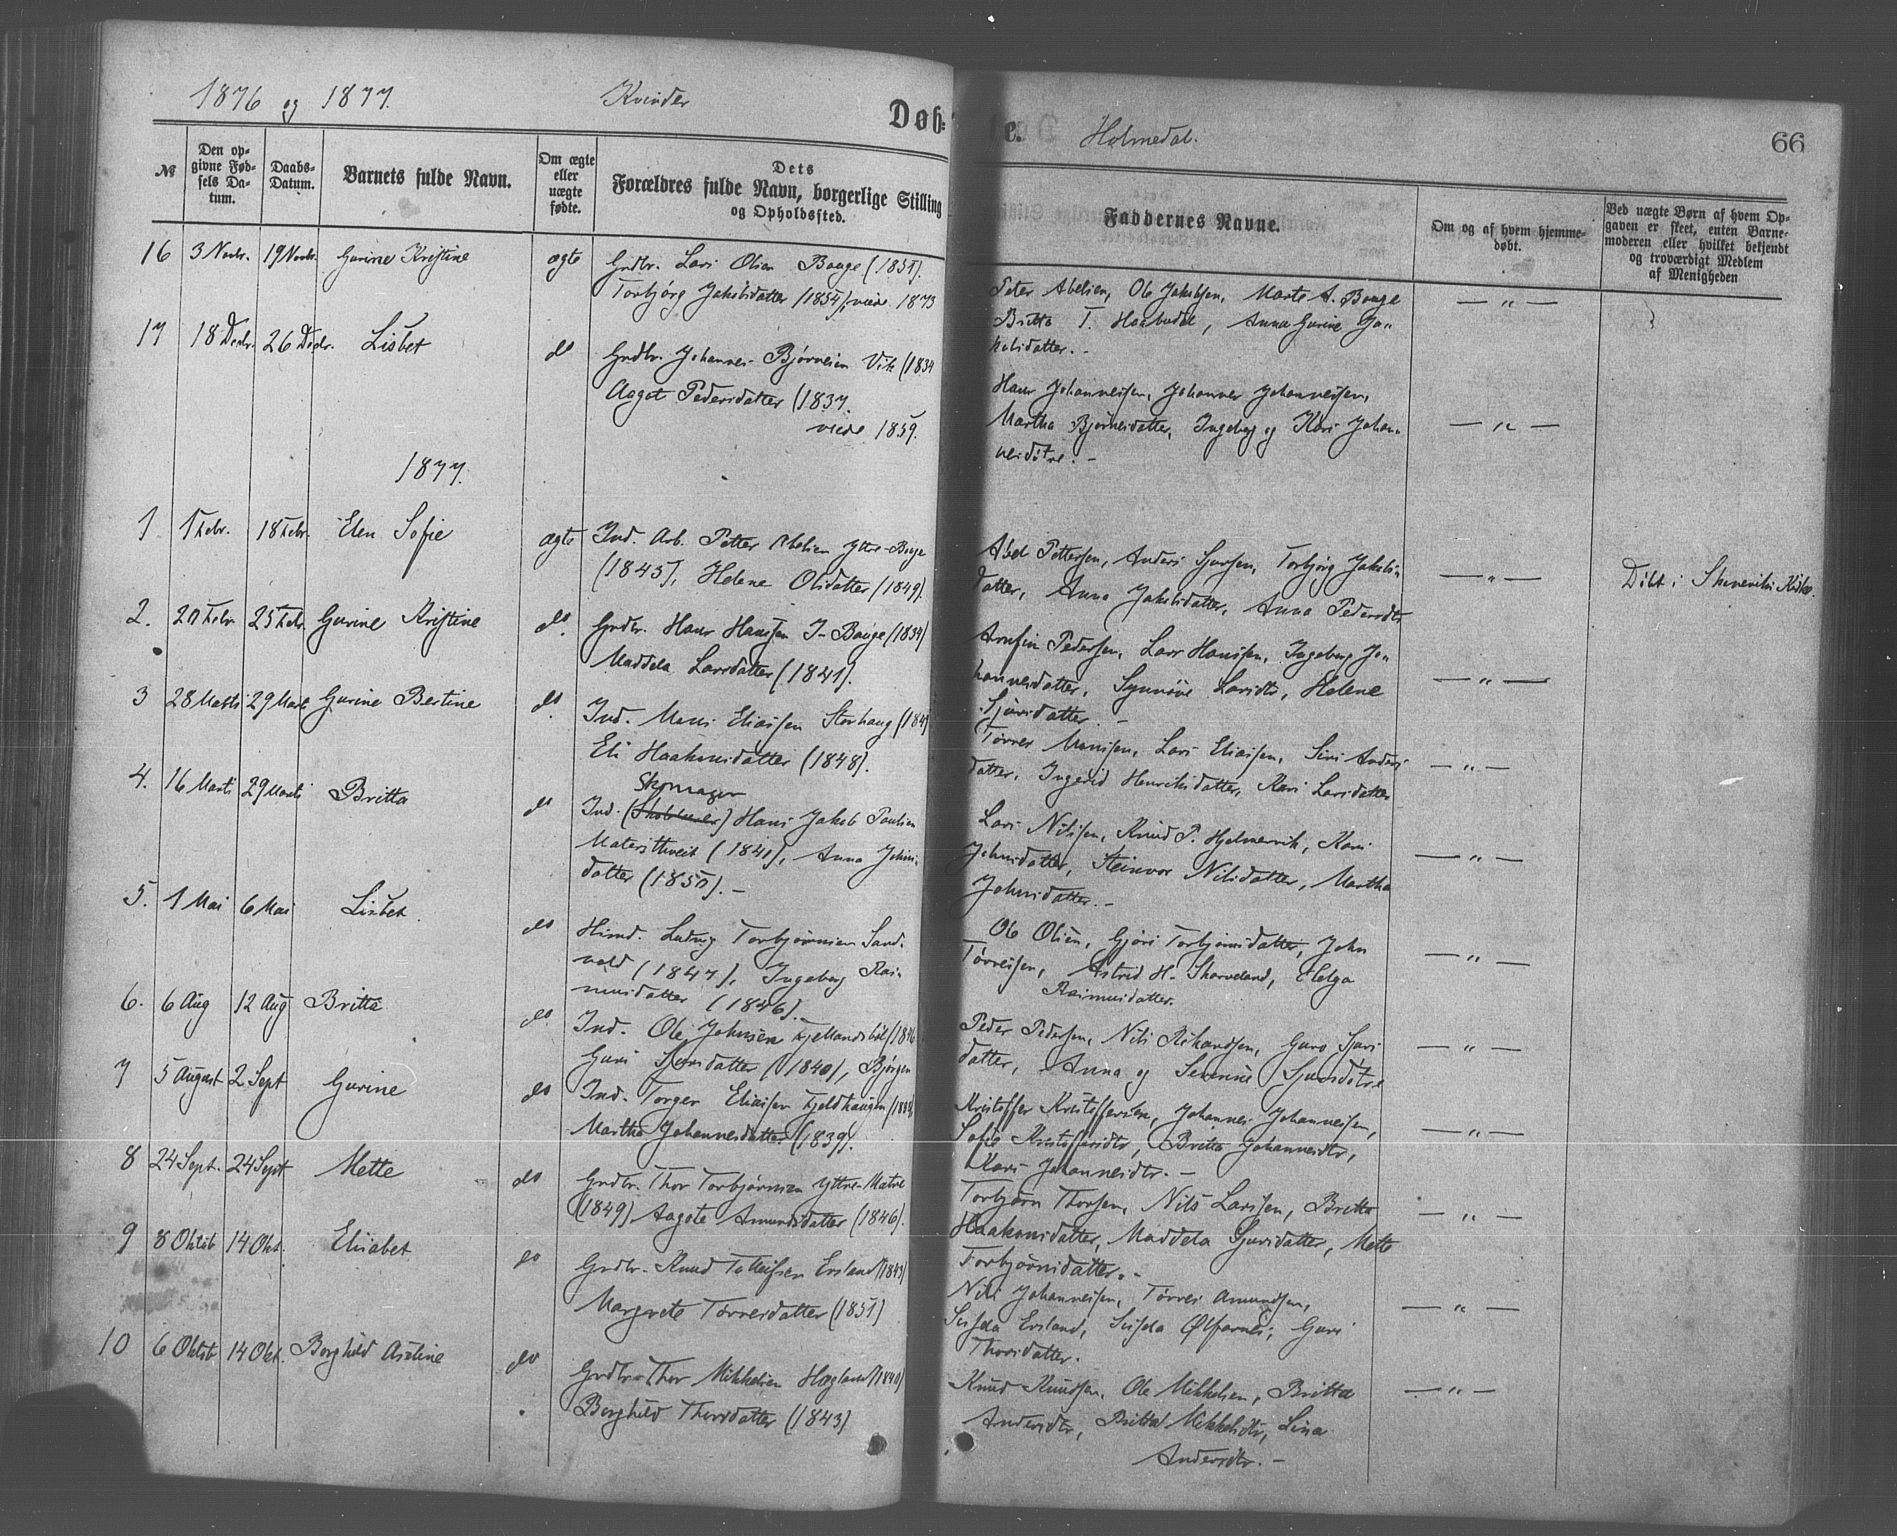 1876 og 1877.
Kvinder
Døb-
e.
Holmedal.
66
№
Den opgivne Fødsels Datum.
Daabs-Datum.
Barnets fulde Navn.
Om ægte eller uægte fødte.
Dets Forældres fulde Navn, borgerlige Stilling og Opholdssted.
Faddernes Navne.
Om og af hvem hjemmedøbt.
Ved uægte Børn af hvem Opgaven er skeet, enten Barnemoderen eller hvilket bekjendt og troværdigt Medlem af Menigheden
16 3 Novbr. 19 Novbr. Gurine Kristine ægte Grdbr. Lars Olsen Bauge (1851).
Torbjørg Jakobsdatter (1854), viede 1873
Peter Abelsen, Ole Jakobsen, Marte A. Bauge
Britta T. Haabadal, Anna Gurine Ja-
kobsdatter. -
— „ —
17 18 Decbr. 26 Decbr. Lisbet do Grdbr. Johannes Bjørnsen Vik (1834
Aagot Pedersdatter (1837.
viede 1859.
Hans Johannessen, Johannes Johannessen,
Martha Bjørnesdatter, Ingeborg og Kari Johan-
nesdøtre. -
— „ —
1877.
1 1 Febr. 18 Febr. Elen Sofie ægte Ind. Arb. Petter Abelsen Yttre-Bauge
(1843), Helene Olsdatter (1849).
Abel Pettersen, Anders Sjursen, Torbjørg Jakobs-
datter, Anna Jakobsdatter, Anna Pedersdtr
— „ —
Døbt i Skonevik Kirke.
2. 20 Febr 25 Febr. Gurine Kristine do. Grdbr. Hans Hanssen I- Bauge (1834)
Maddela Larsdatter (1841).
Arnfin Pedersen, Lars Hanssen, Ingeborg Jo-
hannesdatter, Synnøve Larsdtr, Helene
Sjursdatter. -
— „ —
3 28 Marts 29 Marts Gurine Bertine do. Ind. Mons Eliassen Storhaug (184
Eli Haakonsdatter (1848).
Tørres Monsen, Lars Eliassen, Siri Anders-
datter, Ingerid Henriksdatter, Kari Larsdatter
— „ —
4. 16 Marts 29 Marts Britta do Skomager
Ind. Hans Jakob Paulsen
Matersthveit (1841), Anna Johns-
datter (1850). -
Lars Nilssen, Knud P. Hjelmervik, Kari
Johnsdatter, Steinvor Nilsdatter, Martha
Johnsdatter. -
— „ —
5. 1 Mai 6 Mai Lisbet. do Husmd. Ludvig Torbjørnsen Sand-
vold (1847), Ingeborg Ras-
musdatter (1846). -
Ole Olsen, Gjøri Torbjørnsdatter, John
Tørresen, Astrid H. Skarveland, Helga
Rasmusdatter.
— „ —
6. 6 Aug 12 Aug Britta do. Ind. Ole Johnsen Fjellandsbøl
Guri Sjursdatter (1840), Bjørgen
Peder Pedersen, Nils Rikardsen, Guro Sjurs
datter, Anna og Severine Sjursdøtre
— „ —
7 5 August 2 Sept Gurine do Ind. Torger Eliassen Fjeldhaugen
Martha Johannesdatter (1839).
Kristoffer Kristoffersen, Johannes Johannessen,
Sofie Kristofersdtr, Britta Johannesdtr,
Kari Johannesdtr. -
— „ —
8 24 Sept. 24 Sept Mette do Grdbr. Thor Torbjørnsen Yttre-Matre
(1849) Aagote Amundsdatter (1846).
Torbjørn Thorsen, Nils Larssen, Britta
Haakonsdatter, Maddela Sjursdatter, Mette
Torbjørnsdatter. -
— „ —
9 8 Oktob 14 Okt. Elisabet do Grdbr. Knud Tolleifsen Ersland (1843)
Margrete Tørresdatter (1851)
Nils Johannessen, Tørres Amundsen,
Ersland, Ølfarnes, Guri
Thorsdatter.
— „ —
10 6 Oktob 14 Okt. Borghild Aseline do Grdbr. Thor Mikkelsen Høgland (1840)
Borghild Thorsdatter (1843)
Knud Knudsen, Ole Mikkelsen, Britta
Andersdtr, Britta Mikkelsdtr, Sina
Andersdtr. -
— „ —